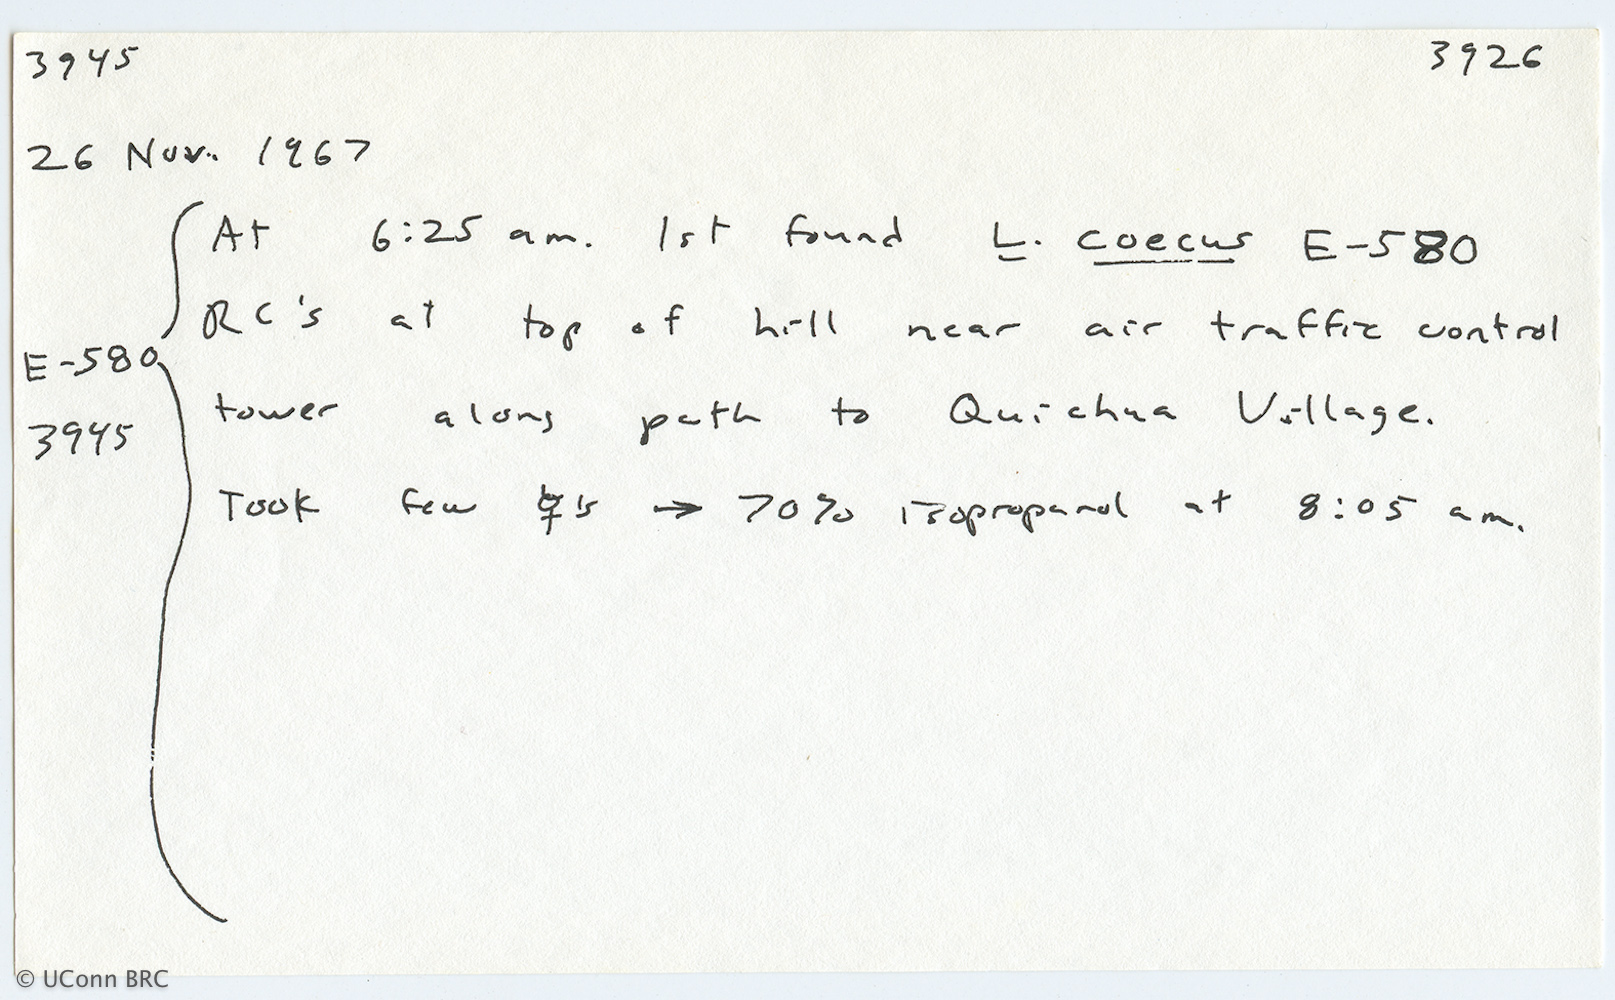 3945 3926
26 Nov. 1967
At 6:25 am. 1st found L. coecus E-580
RC's at top of hill near air traffic control
E-580
tower along path to Quichua Village.
3945
Took few ☿'s → 70% isopropanol at 8:05 am.
© UConn BRC